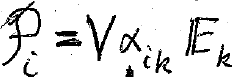 𝒫ᵢ = V αᵢₖ 𝔼ₖ